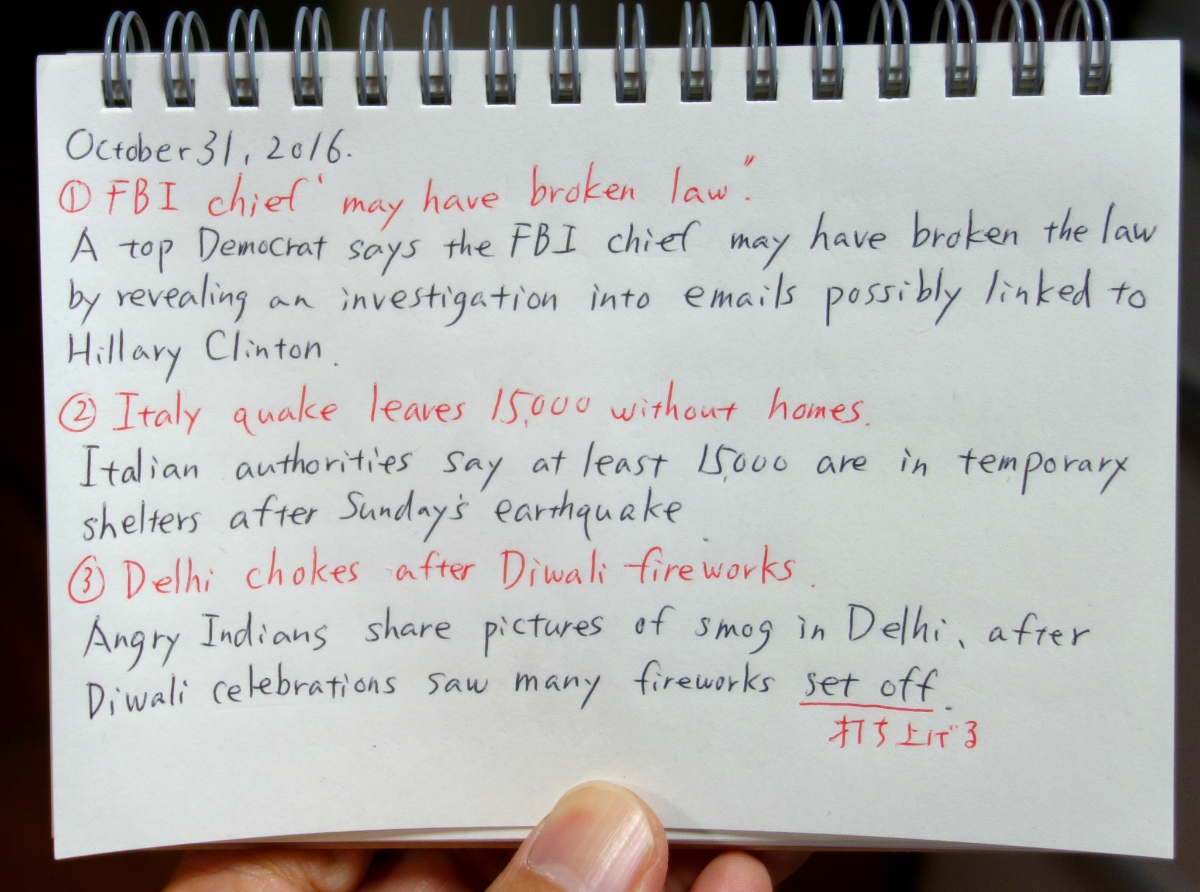 October 31, 2016.
① FBI chief ' may have broken law".
A top Democrat says the FBI chief may have broken the law
by revealing an investigation into emails possibly linked to
Hillary Clinton.
② Italy quake leaves 15,000 without homes.
Italian authorities say at least 15,000 are in temporary
shelters after Sunday's earthquake.
③ Delhi chokes after Diwali fireworks.
Angry Indians share pictures of smog in Delhi, after
Diwali celebrations saw many fireworks set off.
打ち上げる